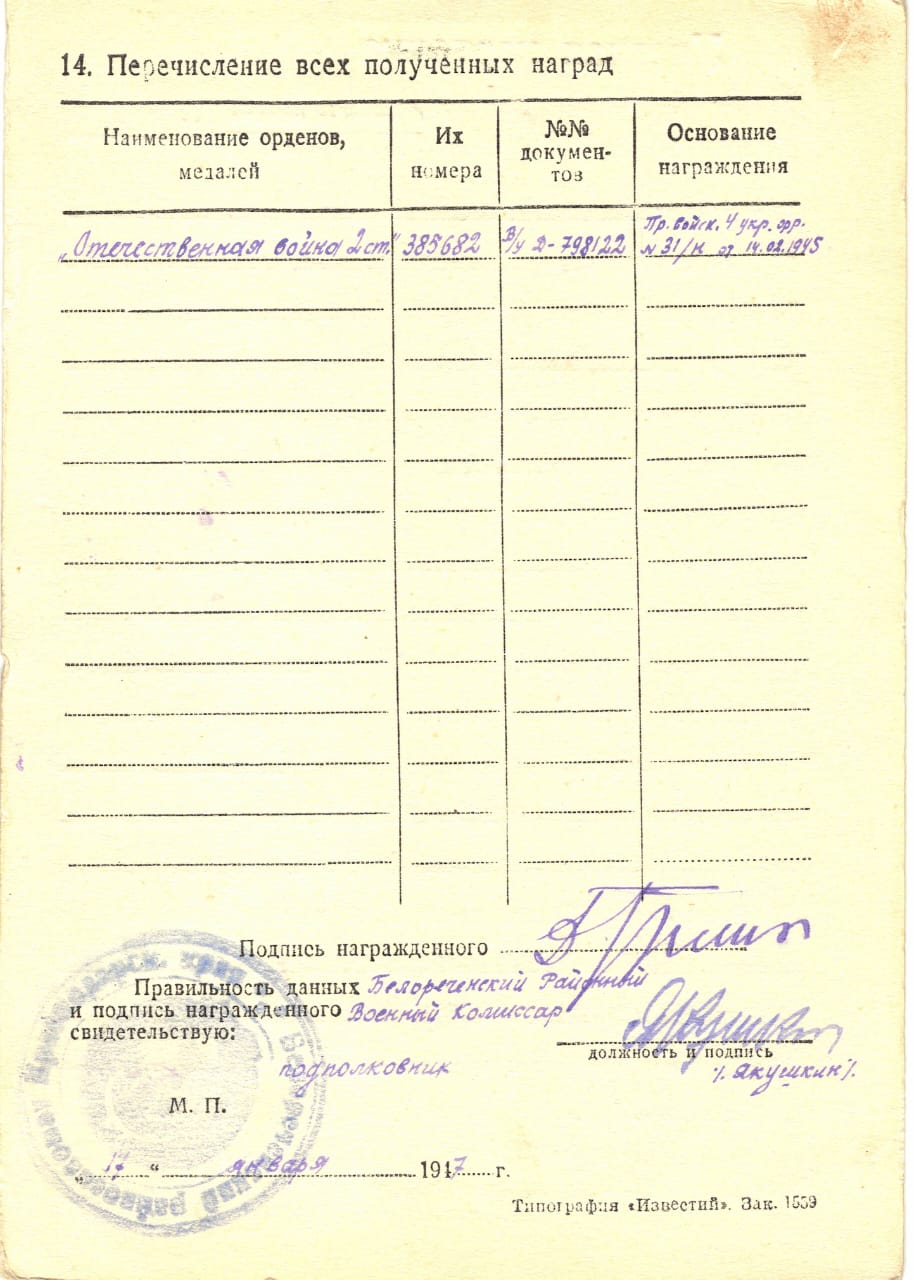 14. Перечисление всех полученных наград
Наименование орденов, медалей
Их номера
№№ документов
Основание награждения
„Отечественная война 2 ст." 385682 В/У Д-798122 Пр. войск. 4 укр. фр.
N 31/Н от 14.02.1945
Подпись награжденного
Правильность данных Белореченский Районный
и подпись награжденного Военный Комиссар
свидетельствую:
должность и подпись
подполковник /Якушкин/.
М. П.
„17 “ января 1947 г.
Типография «Известий». Зак. 1559